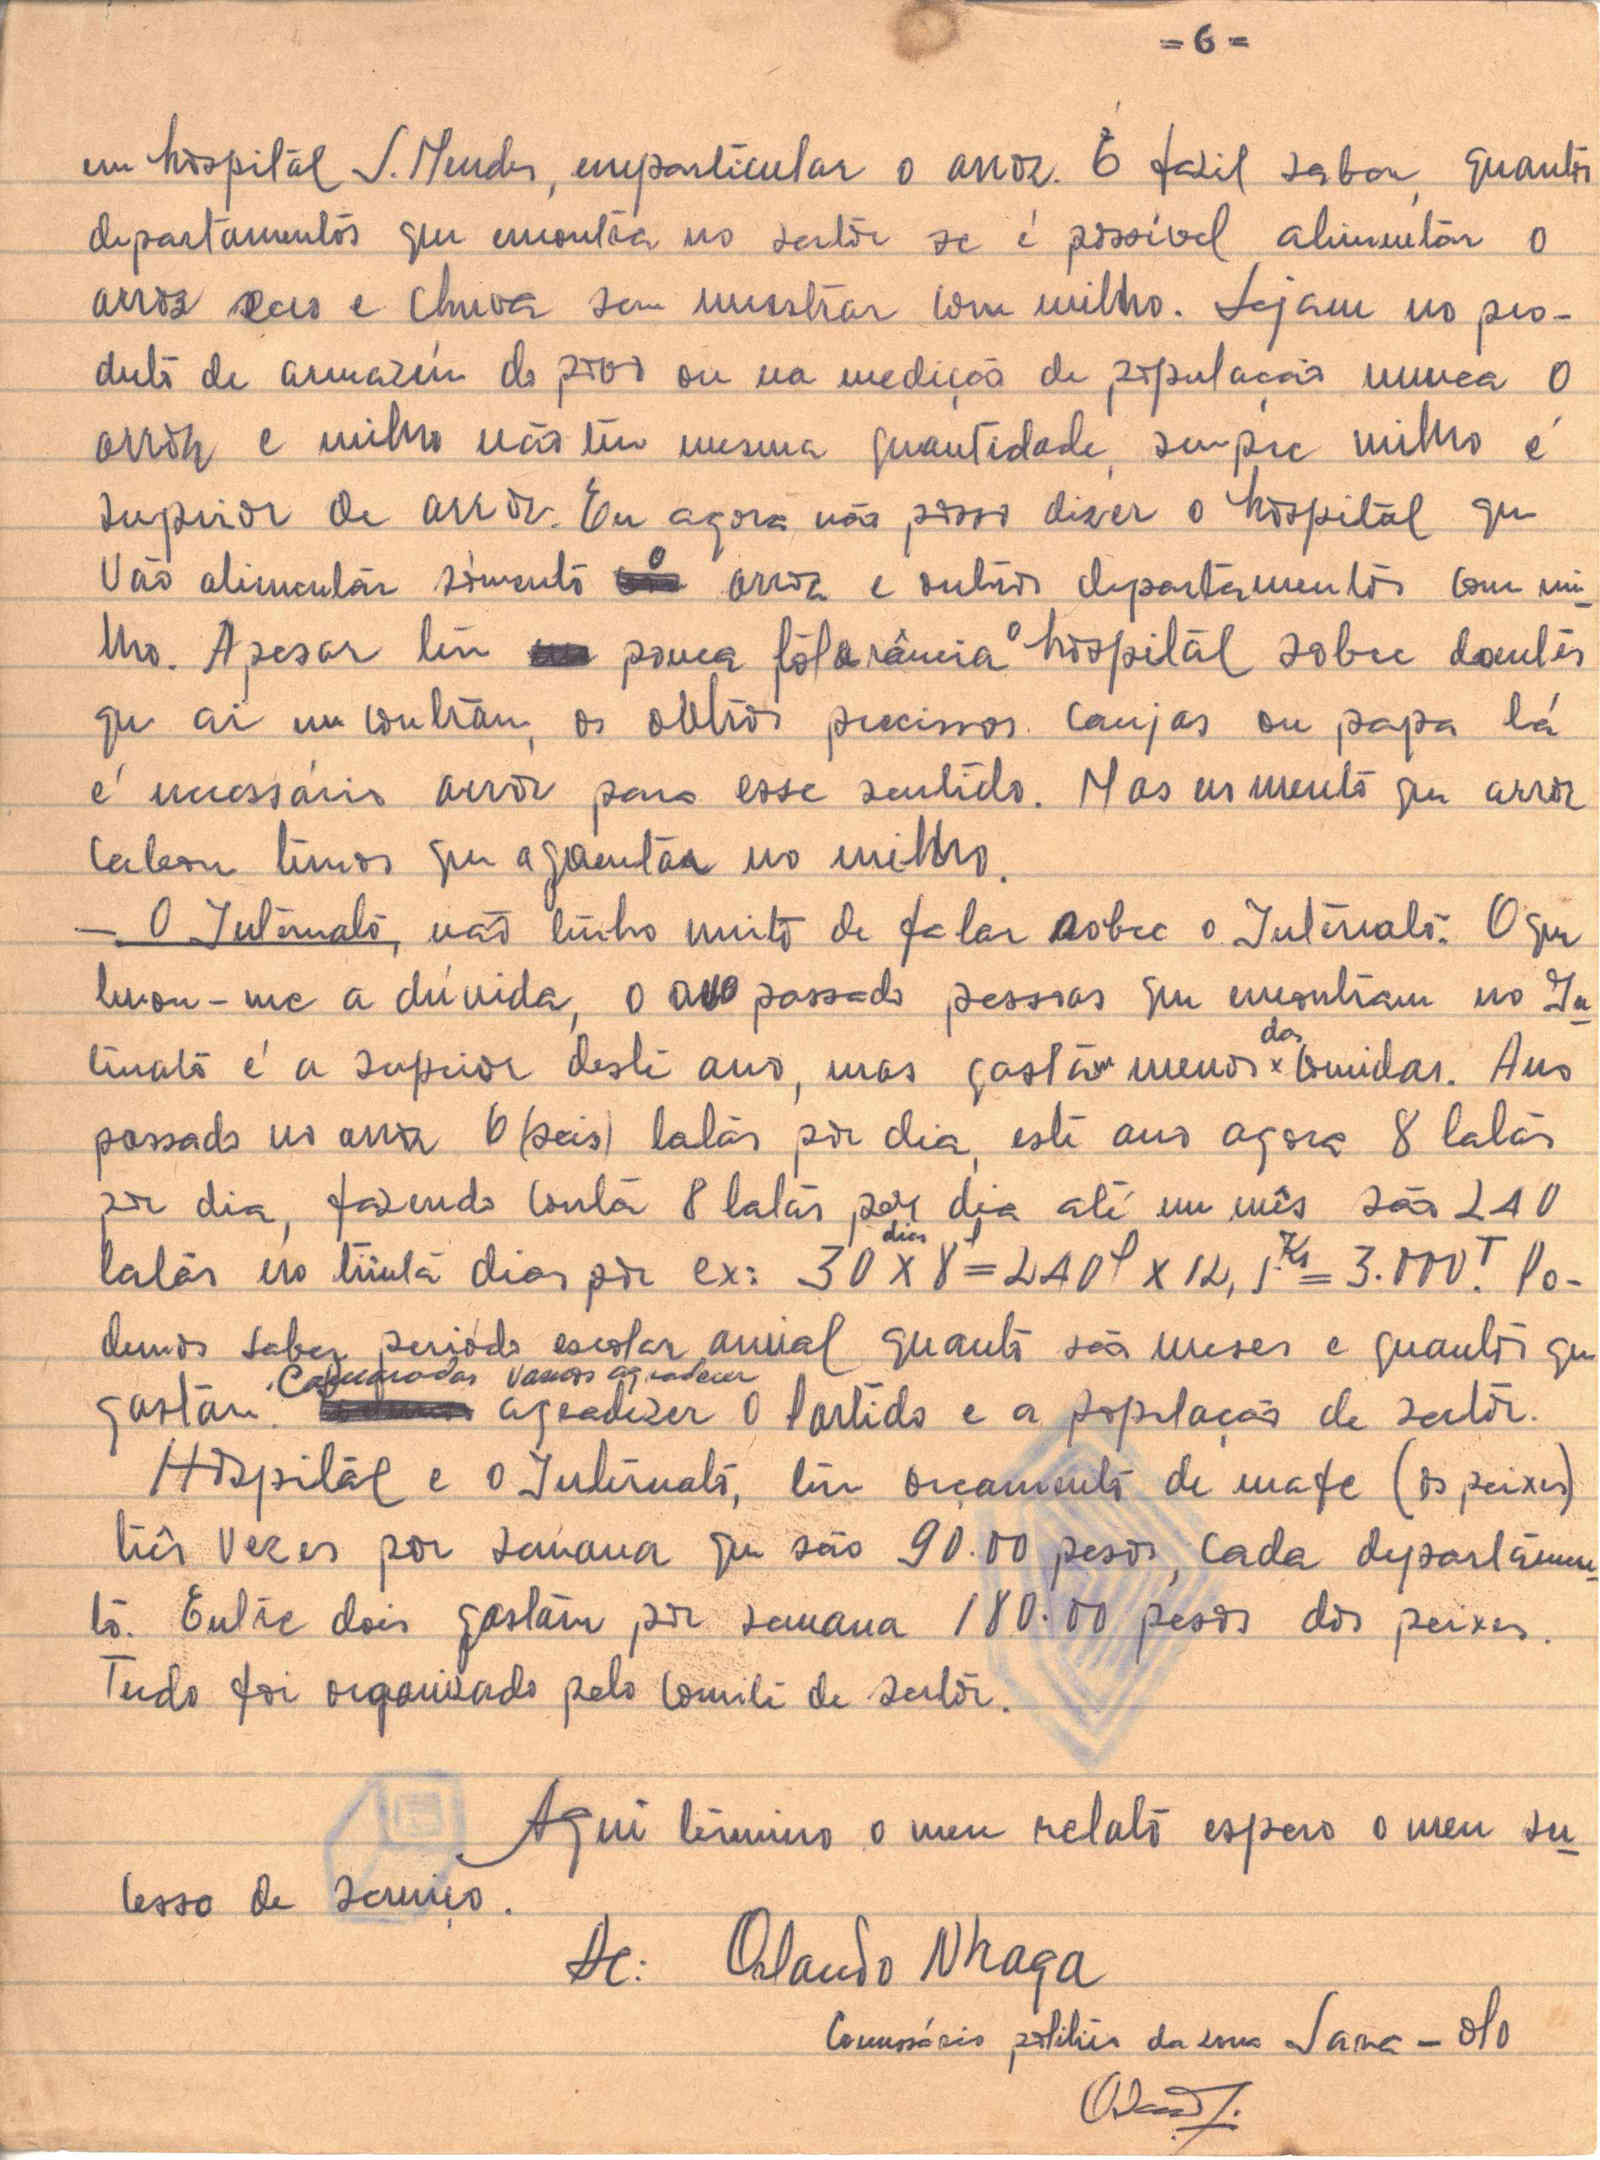 = 6 =
em hospitál S. Mendes, emparticular o arroz. É fasil saber, quantos
departamentos que encontra no sector se é possível alimentár o
arroz seco e chuva sem mostrar com milho. Sejam no pro-
duto de armazém do povo ou na medição de população nunca o
arroz e milho não têm mesma quantidade, sempre milho é
superior de arroz. Eu agora não posso dizer o hospitál que
vão alimentár sómento o arroz e outros departamentos com mi-
lho. Apesar têm pouca o hospitál sobre doentes
que ai encontram, os outros precissos canjas ou papa lá
é necessário arroz para esse sentido. Mas no mento que arroz
cabou temos que agoentár no milho.
— O Internato, não tenho muito de falar sobre o Internato. O que
levou-me a dúvida, o ano passado pessoas que encontram no In-
ternato é a superior deste ano, mas gastám menos das comidas. Ano
passado no arroz 6 (seis) latás por dia, este ano agora 8 latás
por dia, fazendo contá 8 latás por dia até um mês são 240
latás no trinta dias por ex: 30 dias x 8 l = 240 l x 12,5 Kg = 3.000 T. Po-
demos saber periodo escolar anual quanto são meses e quantos que
gastám. Camaradas vamos agradecer agradezer o Partido e a população de sector.
Hospitál e o Internato, têm orçamento de mafe (os peixes)
três vezes por semana que são 90.00 pesos, cada departámen-
to. Entre dois gastám por semana 180.00 pesos dos peixes.
Tudo foi organizado pelo comité de sector.
Aqui término o meu relato espero o meu su-
cesso de serviço.
De: Orlando Nhaga
Comossário politico da zona Sara - olo